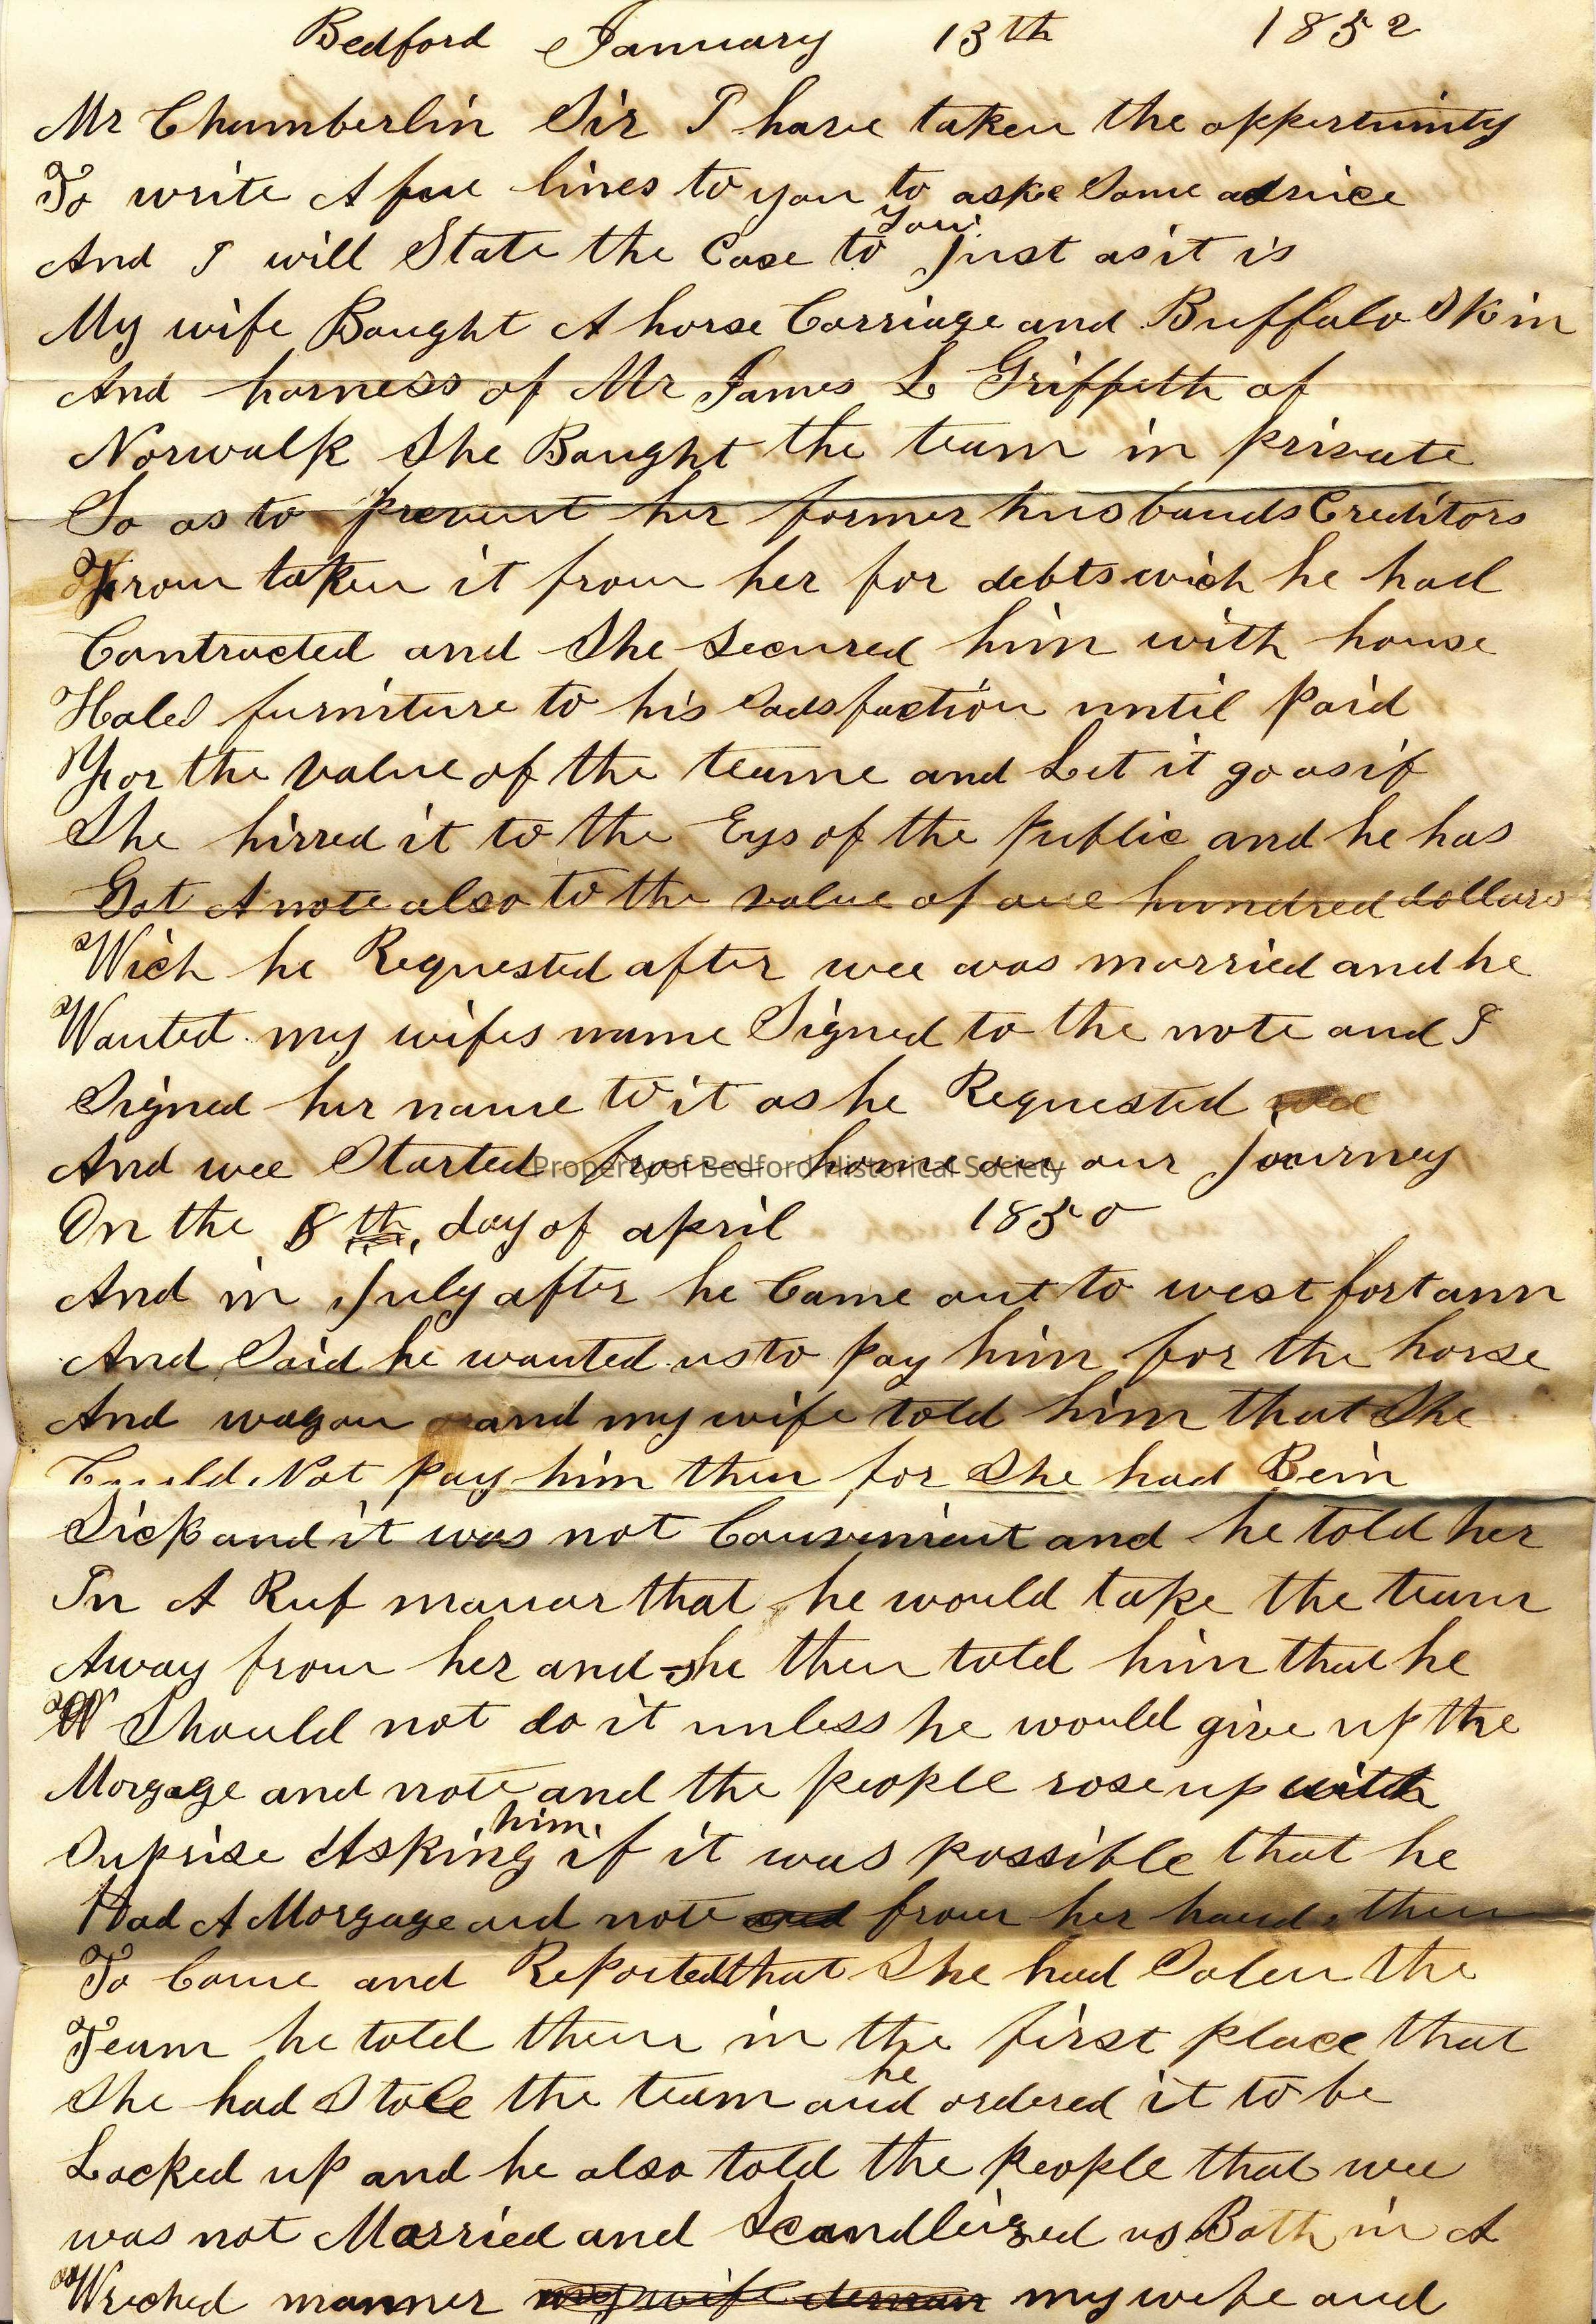 Bedford January 13th 1852
Mr Chamberlin Sir I have taken the oppertunity
To write A fue lines to you to aske Some advice
And I will State the Case to you Just as it is
My wife Bought A horse Carriage and Buffalo Skin
And harness of Mr James L Griffeth of
Norwalk She Bought the team in private
So as to prevent her former husbands Creditors
From taken it from her for debts wich he had
Contracted and She Secured him with house
Hold furniture to his Sadsfaction until paid
For the value of the teame and Let it go as if
She hirred it to the Eys of the public and he has
Got A note also to the value of one hundred dollars
Wich he Requested after wee was married and he
Wanted my wifes name Signed to the note and I
Signed her name to it as he Requested wee
And wee Started from home on our Journey
Property of Bedford Historical Society
On the 8th, day of april 1850
And in July after he Came out to west fort ann
And Said he wanted us to pay him for the horse
And wagon and my wife told him that She
Could Not pay him then for She had Bein
Sick and it was not Convenient and he told her
In A Ruf manar that he would take the team
Away from her and she then told him that he
W Should not do it unless he would give up the
Morgage and note and the people rose up with
Suprise Asking him if it was possible that he
Had A Morgage and note and from her hand, then
To Come and Reported that She had Solen the
Team he told them in the first place that
She had Stole the team and he ordered it to be
Locked up and he also told the people that wee
was not Married and Scandleized us Both in A
Wreched manner my wife my wife and